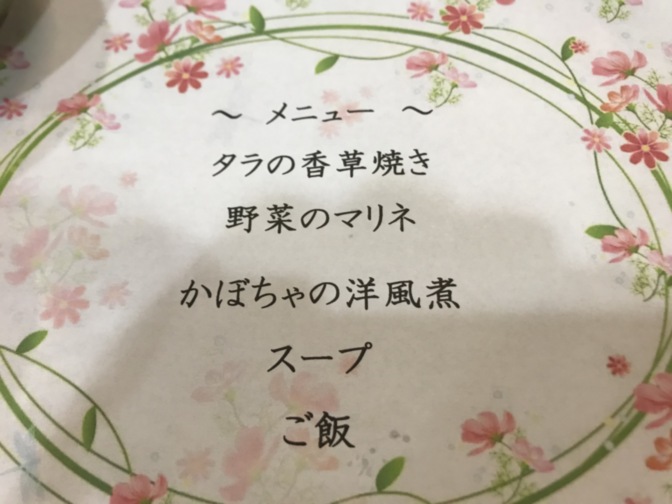 ～ メニュー ～
タラの香草焼き
野菜のマリネ
かぼちゃの洋風煮
スープ
ご飯